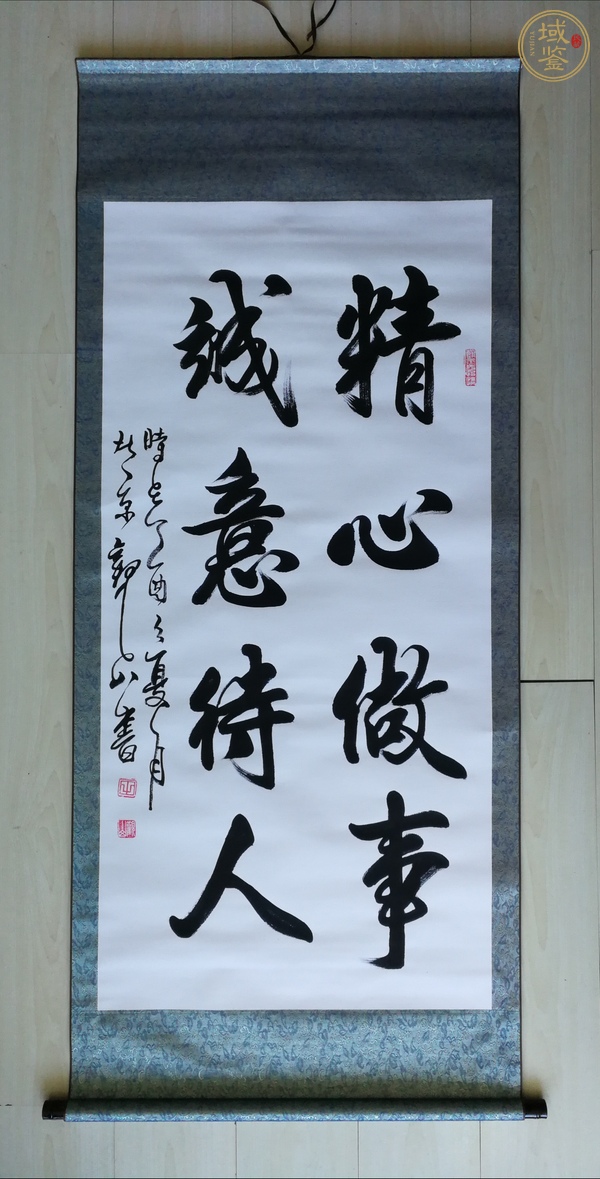 精心做事
诚意待人
时在乙酉之夏月
於京郭
书
域鉴
YUJIAN